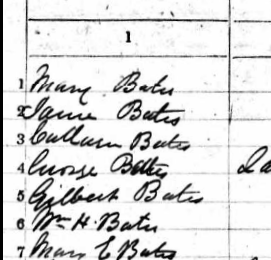 1
1 Mary Bates
2 Jame Bates
3 Callum Bates
4 George Bates
5 Gilbert Bates
6 Wm H. Bates
7 Mary E Bates